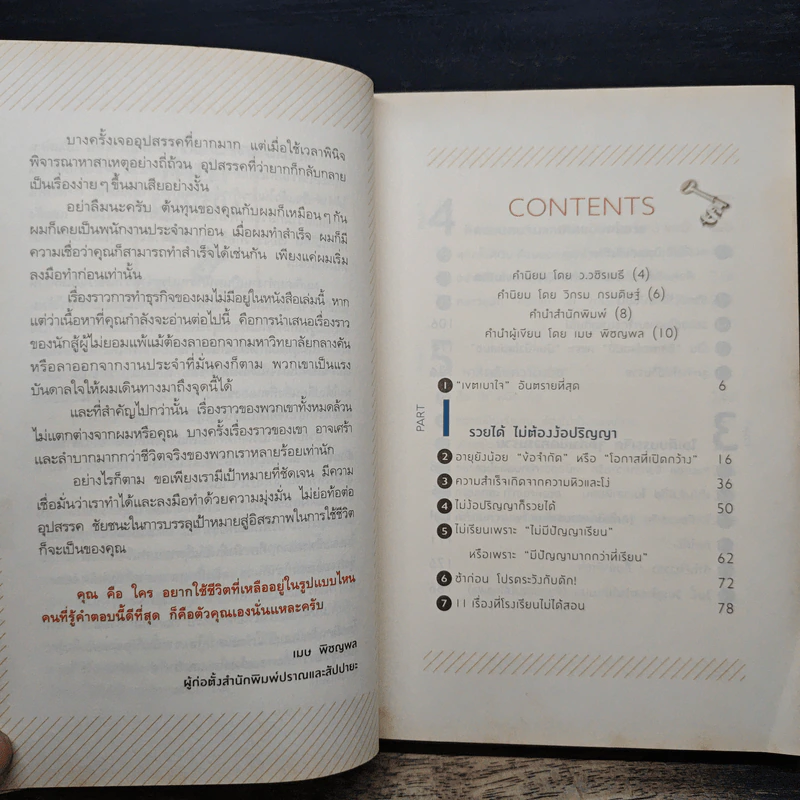 บางครั้งเจออุปสรรคที่ยากมาก แต่เมื่อใช้เวลาพินิจ
พิจารณาหาสาเหตุอย่างถี่ถ้วน อุปสรรคที่ว่ายากก็กลับกลาย
เป็นเรื่องง่ายๆ ขึ้นมาเสียอย่างงั้น
อย่าลืมนะครับ ต้นทุนของคุณกับผมก็เหมือนๆ กัน
ผมก็เคยเป็นพนักงานประจำมาก่อน เมื่อผมทำสำเร็จ ผมก็มี
ความเชื่อว่าคุณก็สามารถทำสำเร็จได้เช่นกัน เพียงแค่ผมเริ่ม
ลงมือทำก่อนเท่านั้น
เรื่องราวการทำธุรกิจของผมไม่มีอยู่ในหนังสือเล่มนี้ หาก
แต่ว่าเนื้อหาที่คุณกำลังจะอ่านต่อไปนี้ คือการนำเสนอเรื่องราว
ของนักสู้ผู้ไม่ยอมแพ้แม้ต้องลาออกจากมหาวิทยาลัยกลางคัน
หรือลาออกจากงานประจำที่มั่นคงก็ตาม พวกเขาเป็นแรง
บันดาลใจให้ผมเดินทางมาถึงจุดนี้ได้
และที่สำคัญไปกว่านั้น เรื่องราวของพวกเขาทั้งหมดล้วน
ไม่แตกต่างจากผมหรือคุณ บางครั้งเรื่องราวของเขา อาจเศร้า
และลำบากมากกว่าชีวิตจริงของพวกเราหลายร้อยเท่านัก
อย่างไรก็ตาม ขอเพียงเรามีเป้าหมายที่ชัดเจน มีความ
เชื่อมั่นว่าเราทำได้และลงมือทำด้วยความมุ่งมั่น ไม่ย่อท้อต่อ
อุปสรรค ชัยชนะในการบรรลุเป้าหมายสู่อิสรภาพในการใช้ชีวิต
ก็จะเป็นของคุณ
คุณ คือ ใคร อยากใช้ชีวิตที่เหลืออยู่ในรูปแบบไหน
คนที่รู้คำตอบนี้ดีที่สุด ก็คือตัวคุณเองนั่นแหละครับ
เมษ พิชญพล
ผู้ก่อตั้งสำนักพิมพ์ปราณและสัปปายะ
CONTENTS
คำนิยม โดย ว.วชิรเมธี (4)
คำนิยม โดย วิกรม กรมดิษฐ์ (6)
คำนำสำนักพิมพ์ (8)
คำนำผู้เขียน โดย เมษ พิชญพล (10)
1 "เขตเบาใจ" อันตรายที่สุด 6
PART 1 รวยได้ ไม่ต้องง้อปริญญา
2 อายุยังน้อย "ข้อจำกัด" หรือ "โอกาสที่เปิดกว้าง" 16
3 ความสำเร็จเกิดจากความหิวและโง่ 36
4 ไม่ง้อปริญญาก็รวยได้ 50
5 ไม่เรียนเพราะ "ไม่มีปัญญาเรียน"
หรือเพราะ "มีปัญญามากกว่าที่เรียน" 62
6 ช้าก่อน โปรดระวังกับดัก! 72
7 11 เรื่องที่โรงเรียนไม่ได้สอน 78